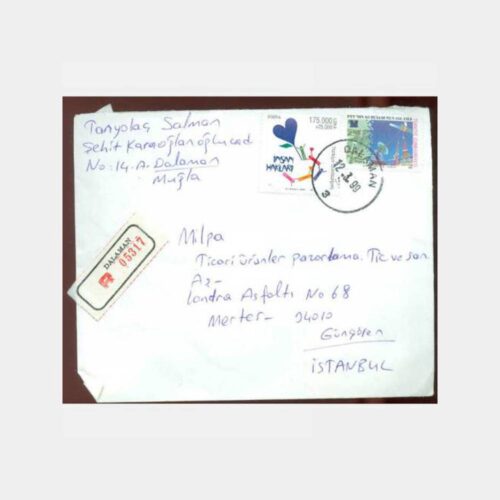 Tanyolaç Salman
Şehit Karaoğlanoğlu cad
No: 14-A- Dalaman
Muğla
175.000
+25.000
İNSAN
HAKLARI
DALAMAN
12 99
3
DALAMAN
R 05317
Milpa
Ticari Ürünler pazarlama. Tic ve san
Aş-
Londra Asfaltı No 68
Merter- 34010
Güngören
İSTANBUL